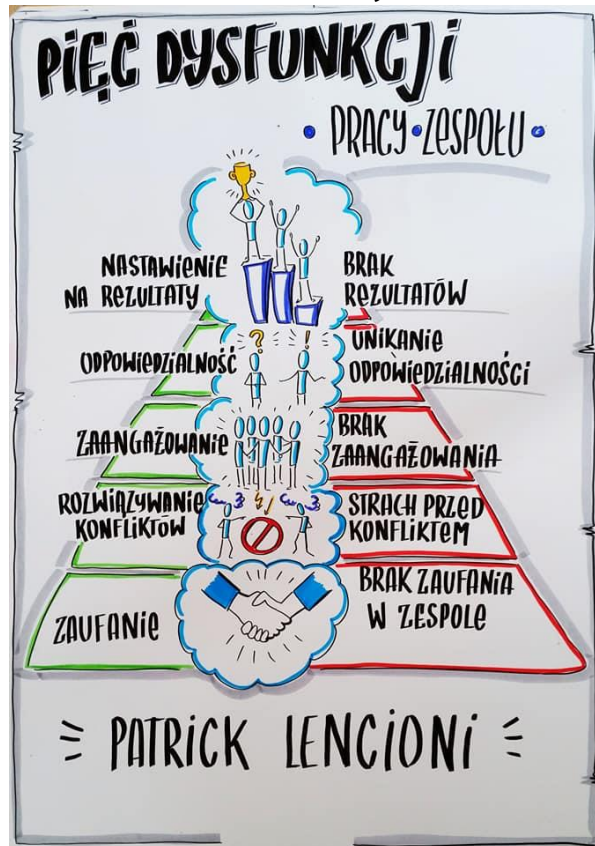 PIĘĆ DYSFUNKCJI
• PRACY • ZESPOŁU •
NASTAWIENIE
NA REZULTATY
BRAK
REZULTATÓW
ODPOWIEDZIALNOŚĆ
UNIKANIE
ODPOWIEDZIALNOŚCI
? !
ZAANGAŻOWANIE
BRAK
ZAANGAŻOWANIA
ROZWIĄZYWANIE
KONFLIKTÓW
STRACH PRZED
KONFLIKTEM
ZAUFANIE
BRAK ZAUFANIA
W ZESPOLE
PATRICK LENCIONI